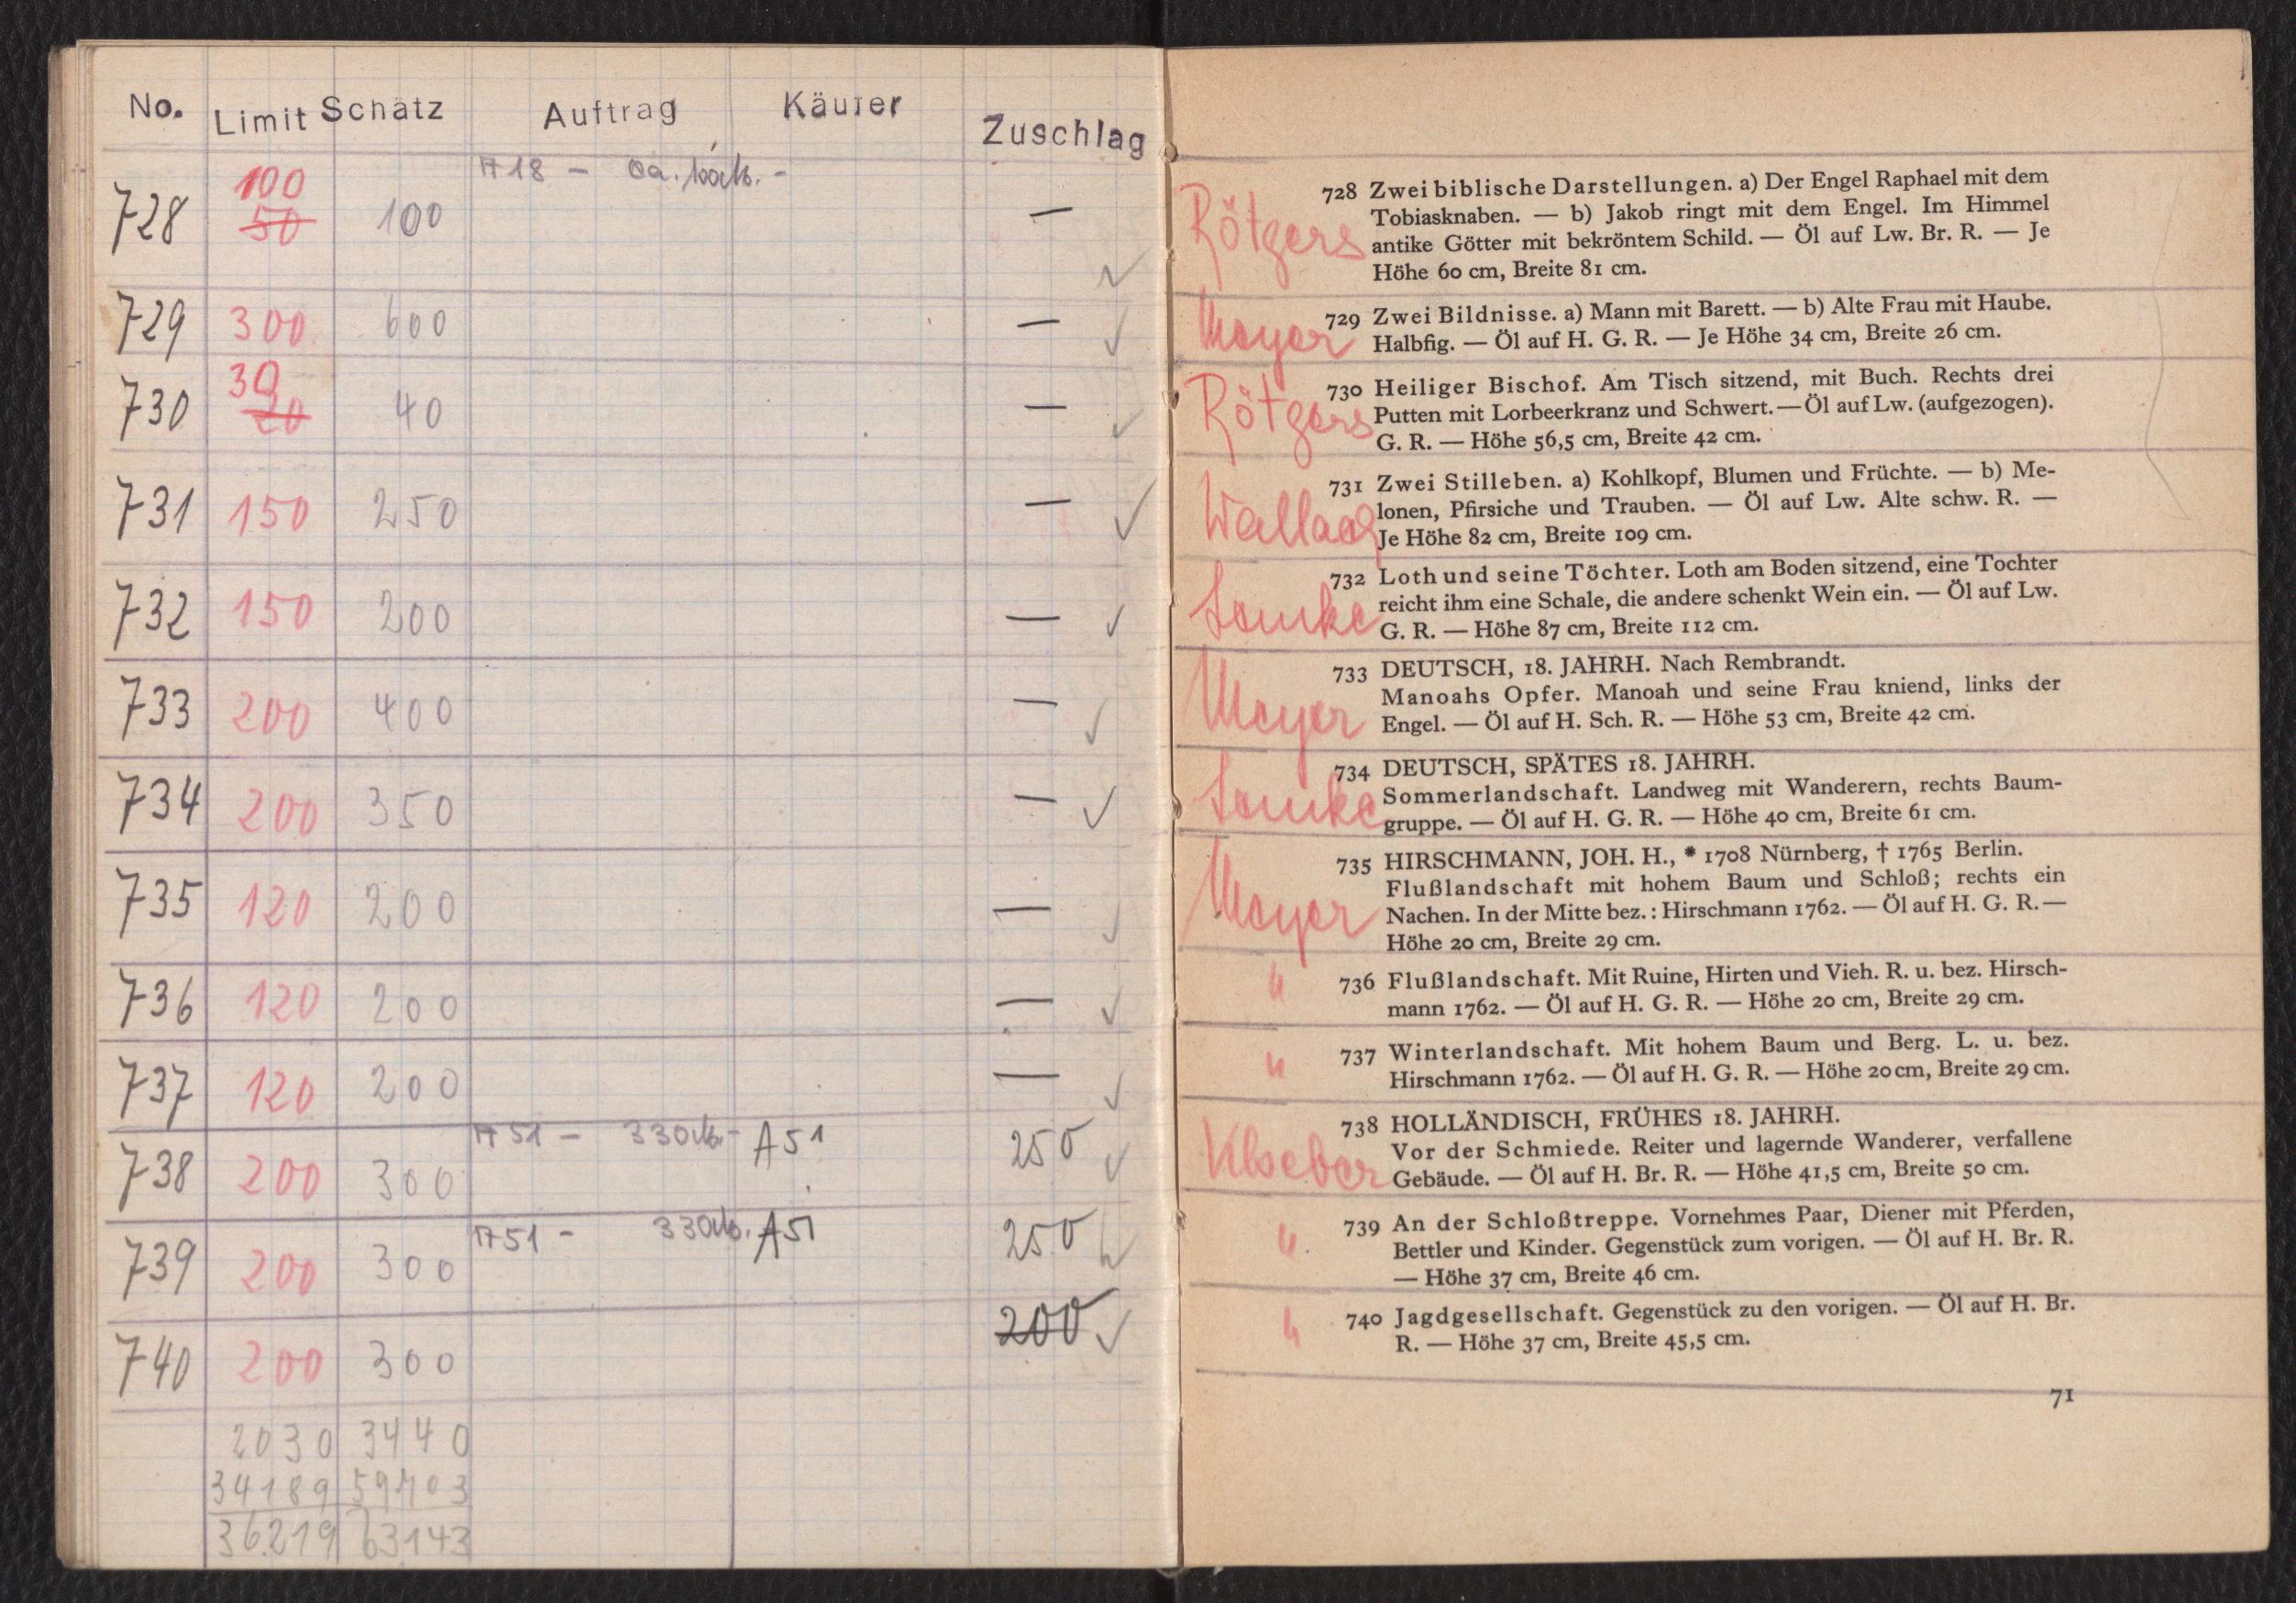 No. Limit Schätz Auftrag Käufer Zuschlag
728 100 50 100 A 18 - —
729 300 600 —
730 30 20 40 —
731 150 250 —
732 150 200 —
733 200 400 —
734 200 350 —
735 120 200 —
736 120 200 —
737 120 200 —
738 200 300 A 51 - 330 A 51 250
739 200 300 A 51 - 330 A 51 250
740 200 300 200
2030 3440
34189 59703
36219 63143
Rötgers
728 Zwei biblische Darstellungen. a) Der Engel Raphael mit dem
Tobiasknaben. — b) Jakob ringt mit dem Engel. Im Himmel
antike Götter mit bekröntem Schild. — Öl auf Lw. Br. R. — Je
Höhe 60 cm, Breite 81 cm.
Meyer
729 Zwei Bildnisse. a) Mann mit Barett. — b) Alte Frau mit Haube.
Halbfig. — Öl auf H. G. R. — Je Höhe 34 cm, Breite 26 cm.
Rötgers
730 Heiliger Bischof. Am Tisch sitzend, mit Buch. Rechts drei
Putten mit Lorbeerkranz und Schwert. — Öl auf Lw. (aufgezogen).
G. R. — Höhe 56,5 cm, Breite 42 cm.
Wallach
731 Zwei Stilleben. a) Kohlkopf, Blumen und Früchte. — b) Me-
lonen, Pfirsiche und Trauben. — Öl auf Lw. Alte schw. R. —
Je Höhe 82 cm, Breite 109 cm.
Lemke
732 Loth und seine Töchter. Loth am Boden sitzend, eine Tochter
reicht ihm eine Schale, die andere schenkt Wein ein. — Öl auf Lw.
G. R. — Höhe 87 cm, Breite 112 cm.
Meyer
733 DEUTSCH, 18. JAHRH. Nach Rembrandt.
Manoahs Opfer. Manoah und seine Frau kniend, links der
Engel. — Öl auf H. Sch. R. — Höhe 53 cm, Breite 42 cm.
Lemke
734 DEUTSCH, SPÄTES 18. JAHRH.
Sommerlandschaft. Landweg mit Wanderern, rechts Baum-
gruppe. — Öl auf H. G. R. — Höhe 40 cm, Breite 61 cm.
Meyer
735 HIRSCHMANN, JOH. H., * 1708 Nürnberg, † 1765 Berlin.
Flußlandschaft mit hohem Baum und Schloß; rechts ein
Nachen. In der Mitte bez.: Hirschmann 1762. — Öl auf H. G. R. —
Höhe 20 cm, Breite 29 cm.
"
736 Flußlandschaft. Mit Ruine, Hirten und Vieh. R. u. bez. Hirsch-
mann 1762. — Öl auf H. G. R. — Höhe 20 cm, Breite 29 cm.
"
737 Winterlandschaft. Mit hohem Baum und Berg. L. u. bez.
Hirschmann 1762. — Öl auf H. G. R. — Höhe 20 cm, Breite 29 cm.
Kloeber
738 HOLLÄNDISCH, FRÜHES 18. JAHRH.
Vor der Schmiede. Reiter und lagernde Wanderer, verfallene
Gebäude. — Öl auf H. Br. R. — Höhe 41,5 cm, Breite 50 cm.
"
739 An der Schloßtreppe. Vornehmes Paar, Diener mit Pferden,
Bettler und Kinder. Gegenstück zum vorigen. — Öl auf H. Br. R.
— Höhe 37 cm, Breite 46 cm.
"
740 Jagdgesellschaft. Gegenstück zu den vorigen. — Öl auf H. Br.
R. — Höhe 37 cm, Breite 45,5 cm.
71